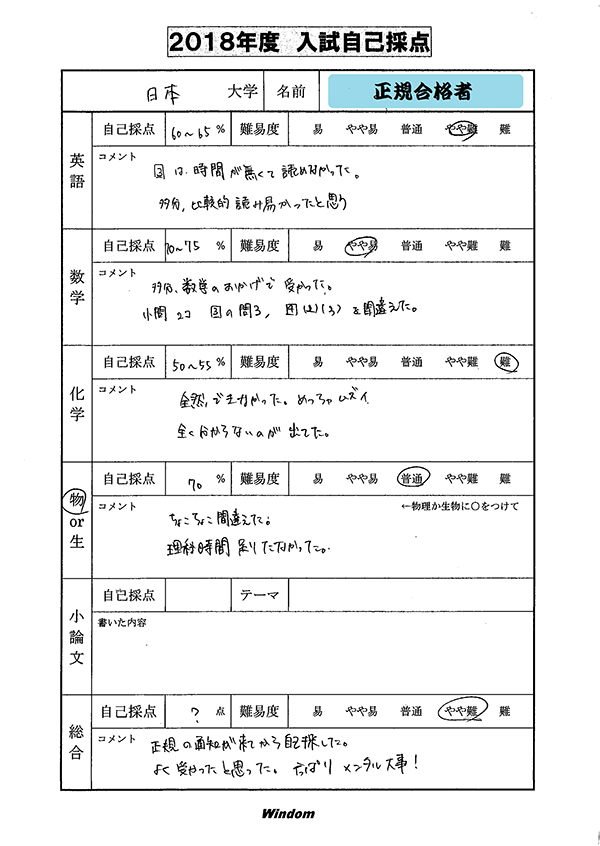 2018年度 入試自己採点
日本 大学 名前 正規合格者
英語 自己採点 60~65 % 難易度 易 やや易 普通 やや難 難
コメント
は、時間が無くて読めなかった。
多分、比較的読み易かったと思う
数学 自己採点 70~75 % 難易度 易 やや易 普通 やや難 難
コメント
多分、数学のおかげで受かった。
小問 2コ の問3, (2)(3)を間違えた。
化学 自己採点 50~55 % 難易度 易 やや易 普通 やや難 難
コメント
全然、できなかった。めっちゃムズイ
全く分からないのが出てた。
物or生 自己採点 70 % 難易度 易 やや易 普通 やや難 難
コメント ←物理か生物に〇をつけて
ちょこちょこ間違えた。
理科時間足りなかった。
小論文 自己採点 テーマ
書いた内容
総合 自己採点 ? 点 難易度 易 やや易 普通 やや難 難
コメント
正規の通知が来てから自採した。
よく受かったと思った。やっぱりメンタル大事!
Windom